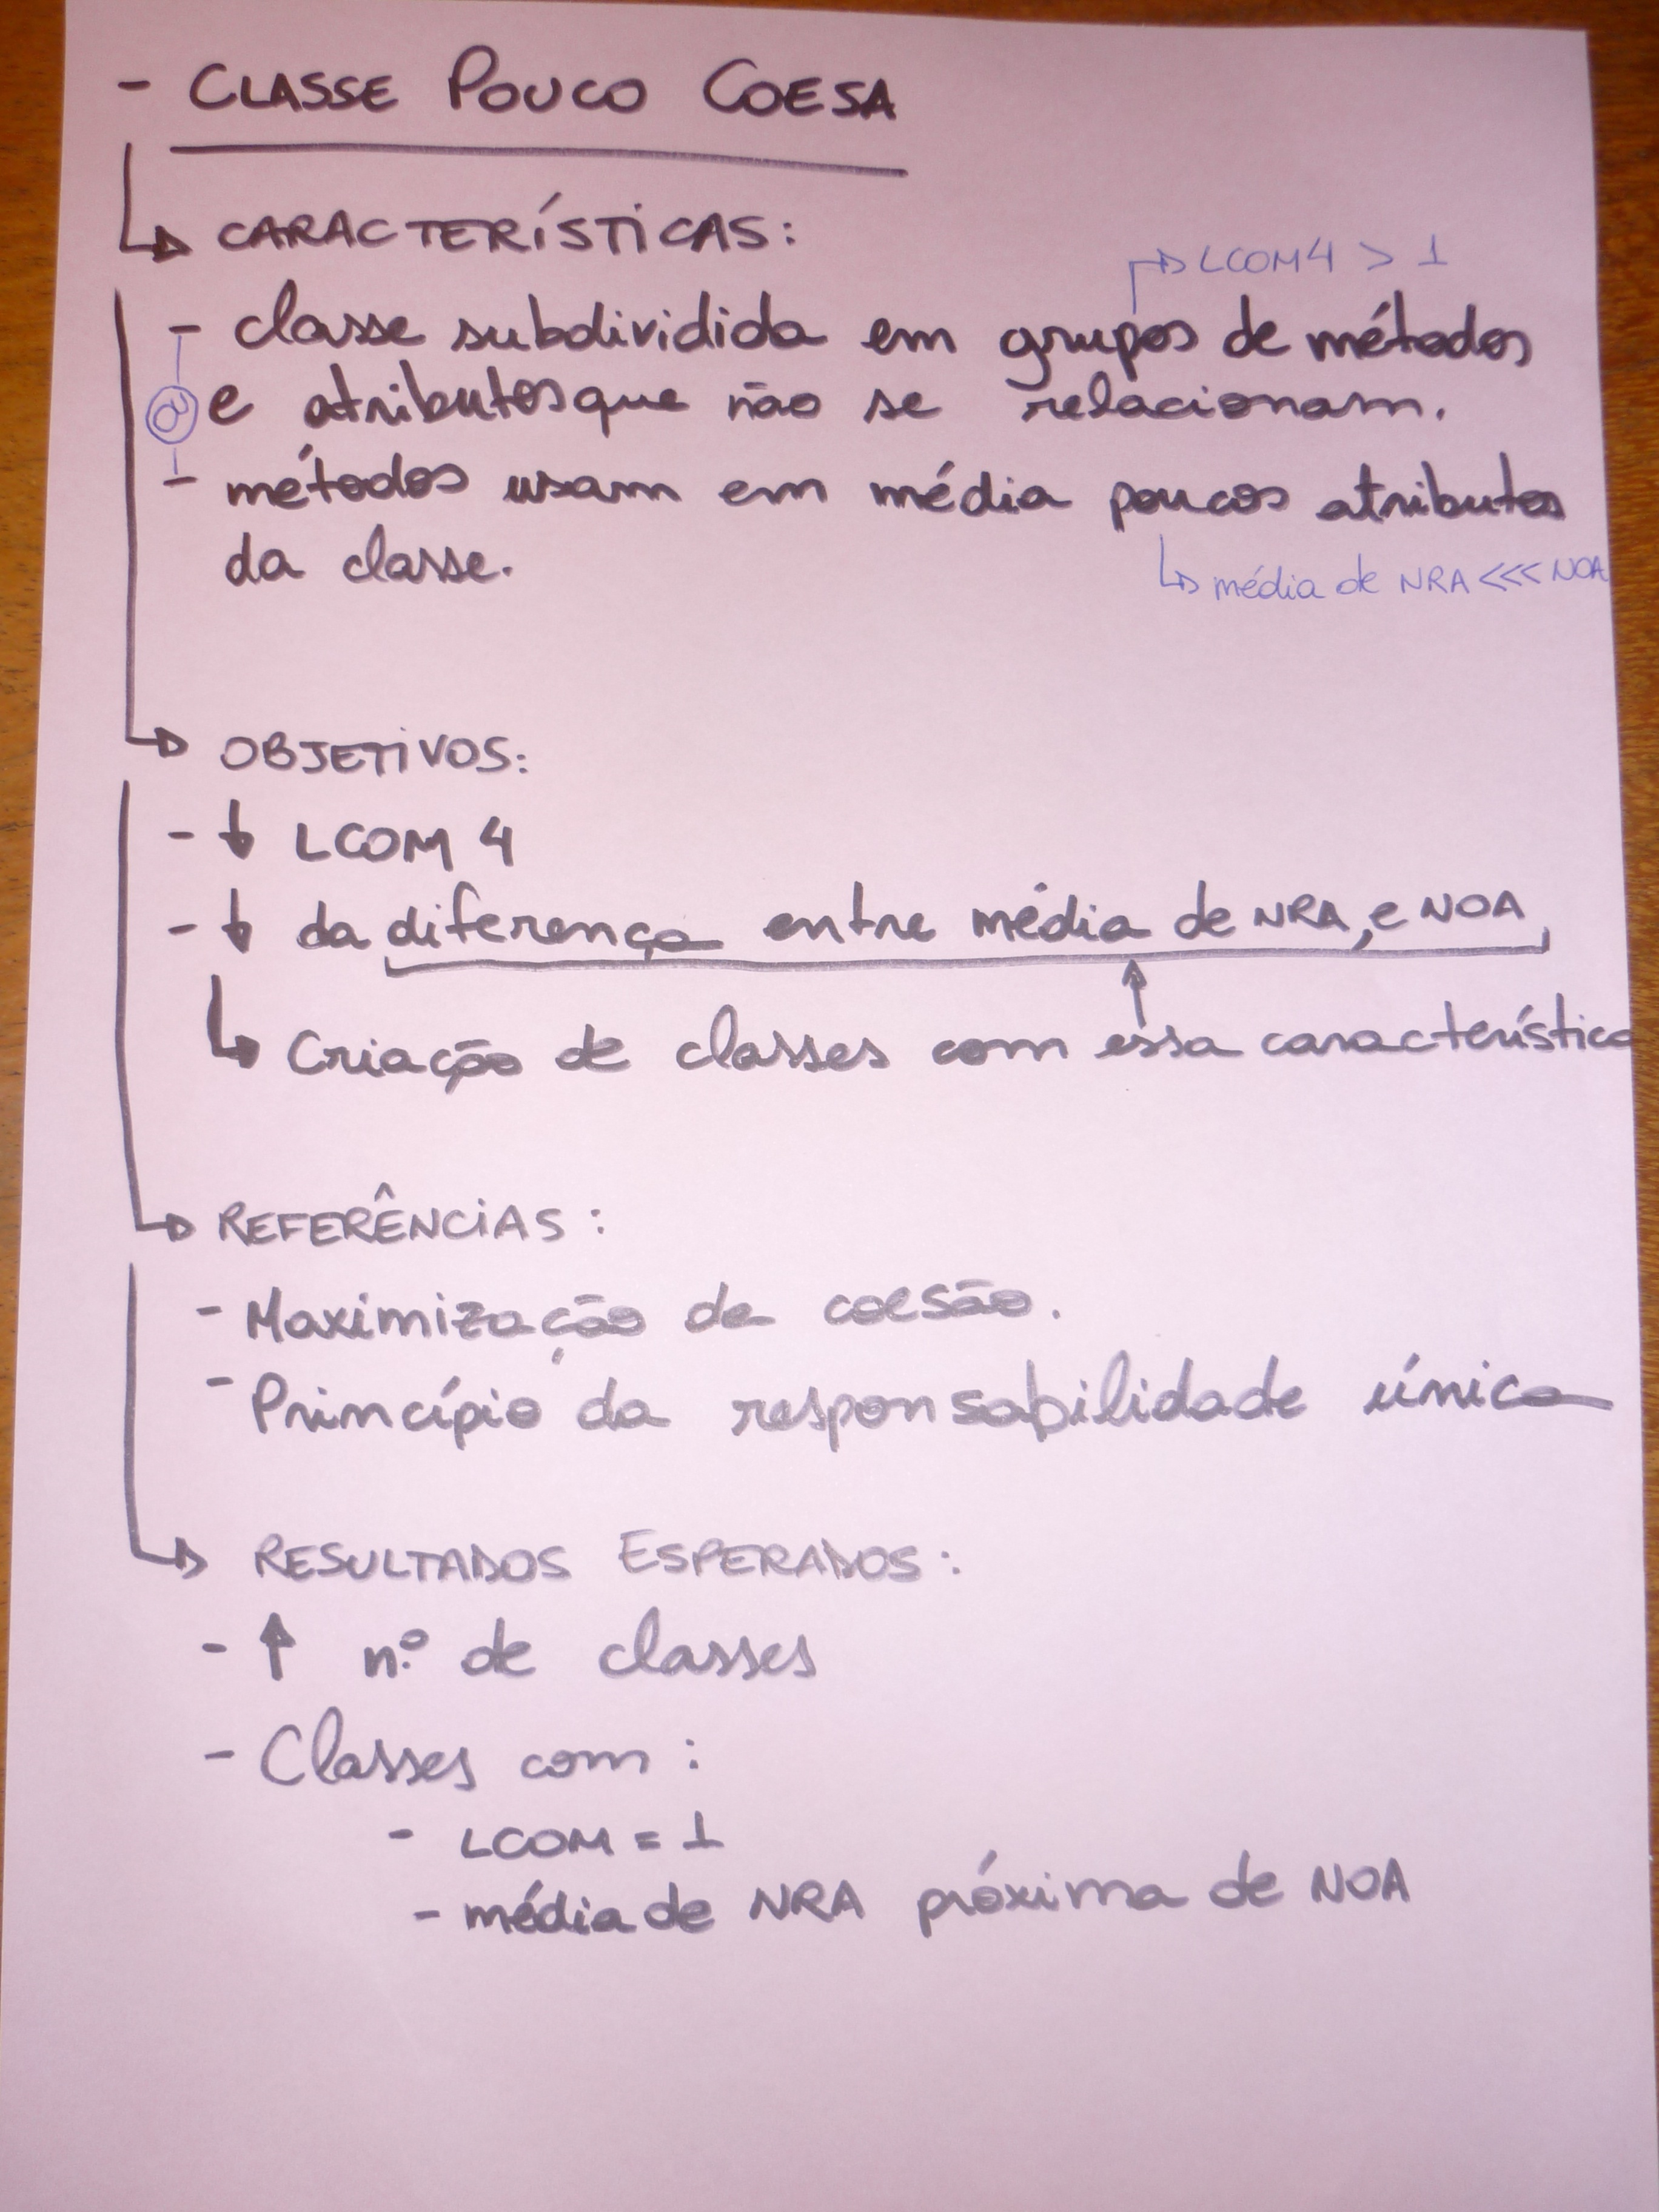 - CLASSE POUCO COESA
↳ CARACTERÍSTICAS:
↱ LCOM4 > 1
- classe subdividida em grupos de métodos
e atributos que não se relacionam.
ou
- métodos usam em média poucos atributos
da classe.
↳ média de NRA <<< NOA
↳ OBJETIVOS:
- ↓ LCOM 4
- ↓ da diferença entre média de NRA, e NOA
↳ Criação de classes com essa característica
↳ REFERÊNCIAS:
- Maximização da coesão.
- Princípio da responsabilidade única
↳ RESULTADOS ESPERADOS:
- ↑ nº de classes
- Classes com:
- LCOM = 1
- média de NRA próxima de NOA